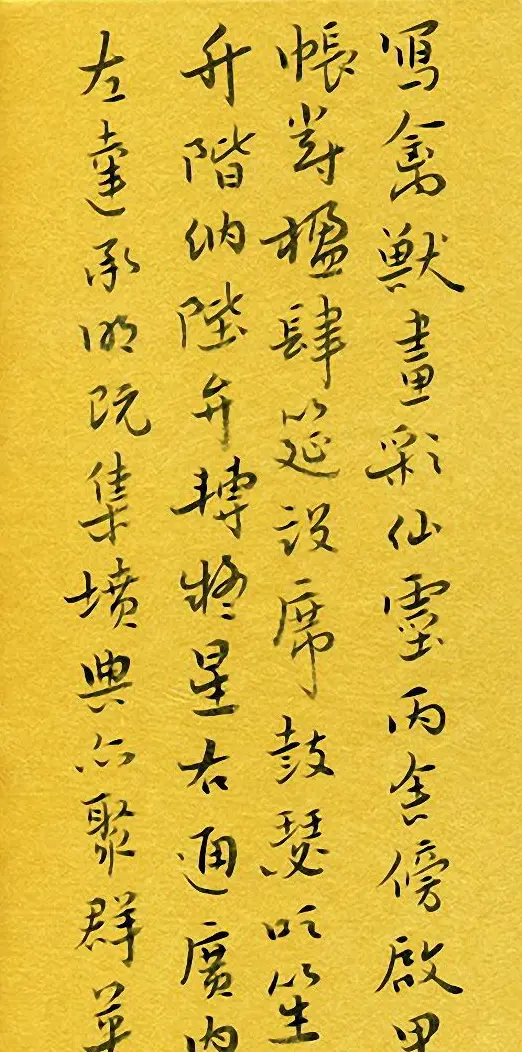 寫禽獸畫彩仙靈丙舍傍啟甲
帳對楹肆筵設席鼓瑟吹笙
升階納陛弁轉疑星右通廣內
左達承明既集墳典亦聚群英